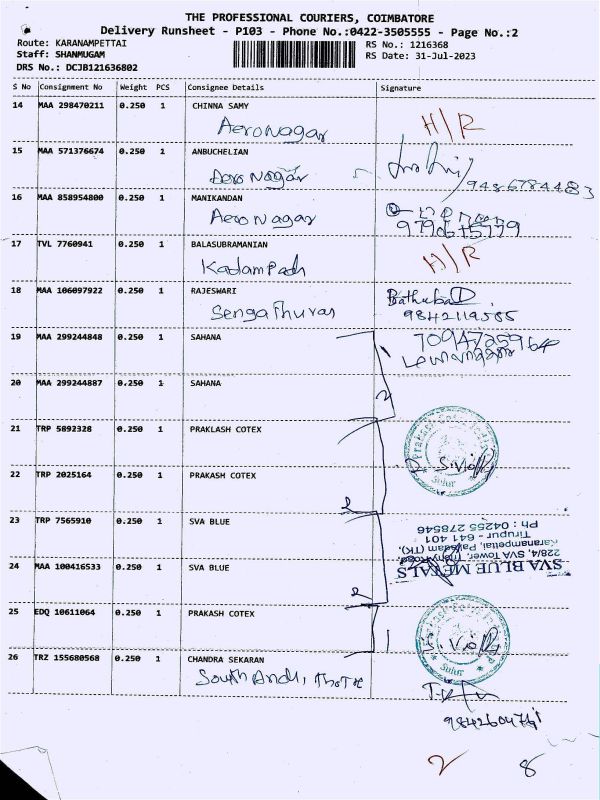 THE PROFESSIONAL COURIERS, COIMBATORE
Delivery Runsheet - P103 - Phone No.:0422-3505555 - Page No.:2
Route: KARANAMPETTAI
RS No.: 1216368
Staff: SHANMUGAM
RS Date: 31-Jul-2023
DRS No.: DCJB121636802
S No Consignment No Weight PCS Consignee Details Signature
14 MAA 298470211 0.250 1 CHINNA SAMY
Aeronagar H/R
15 MAA 571376674 0.250 1 ANBUCHELIAN
Aero Nagar 9486784483
16 MAA 858954800 0.250 1 MANIKANDAN
Aero Nagar
17 TVL 7760941 0.250 1 BALASUBRAMANIAN
Kadampadi H/R
18 MAA 106097922 0.250 1 RAJESWARI
9842119585
19 MAA 299244848 0.250 1 SAHANA
20 MAA 299244887 0.250 1 SAHANA
2
21 TRP 5892328 0.250 1 PRAKLASH COTEX
Sulur
22 TRP 2025164 0.250 1 PRAKASH COTEX
2
23 TRP 7565910 0.250 1 SVA BLUE
SVA BLUE METALS
228/4, SVA Tower, Trichy Road,
Karanampettai, Palladam (TK),
Tirupur - 641 401
Ph : 04255 278546
24 MAA 100416533 0.250 1 SVA BLUE
2
25 EDQ 10611064 0.250 1 PRAKASH COTEX
1
Sulur
26 TRZ 155680568 0.250 1 CHANDRA SEKARAN
2 8